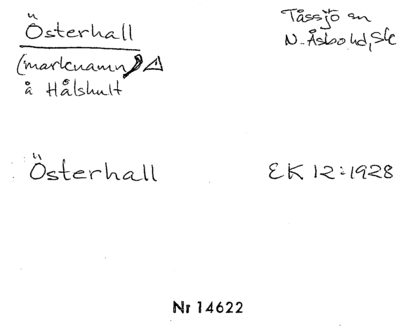 Österhall
Tåssjö sn
(marknamn)
N. Åsbo hd, Sk
å Hålshult
Österhall
EK 12:1928
Nr 14622